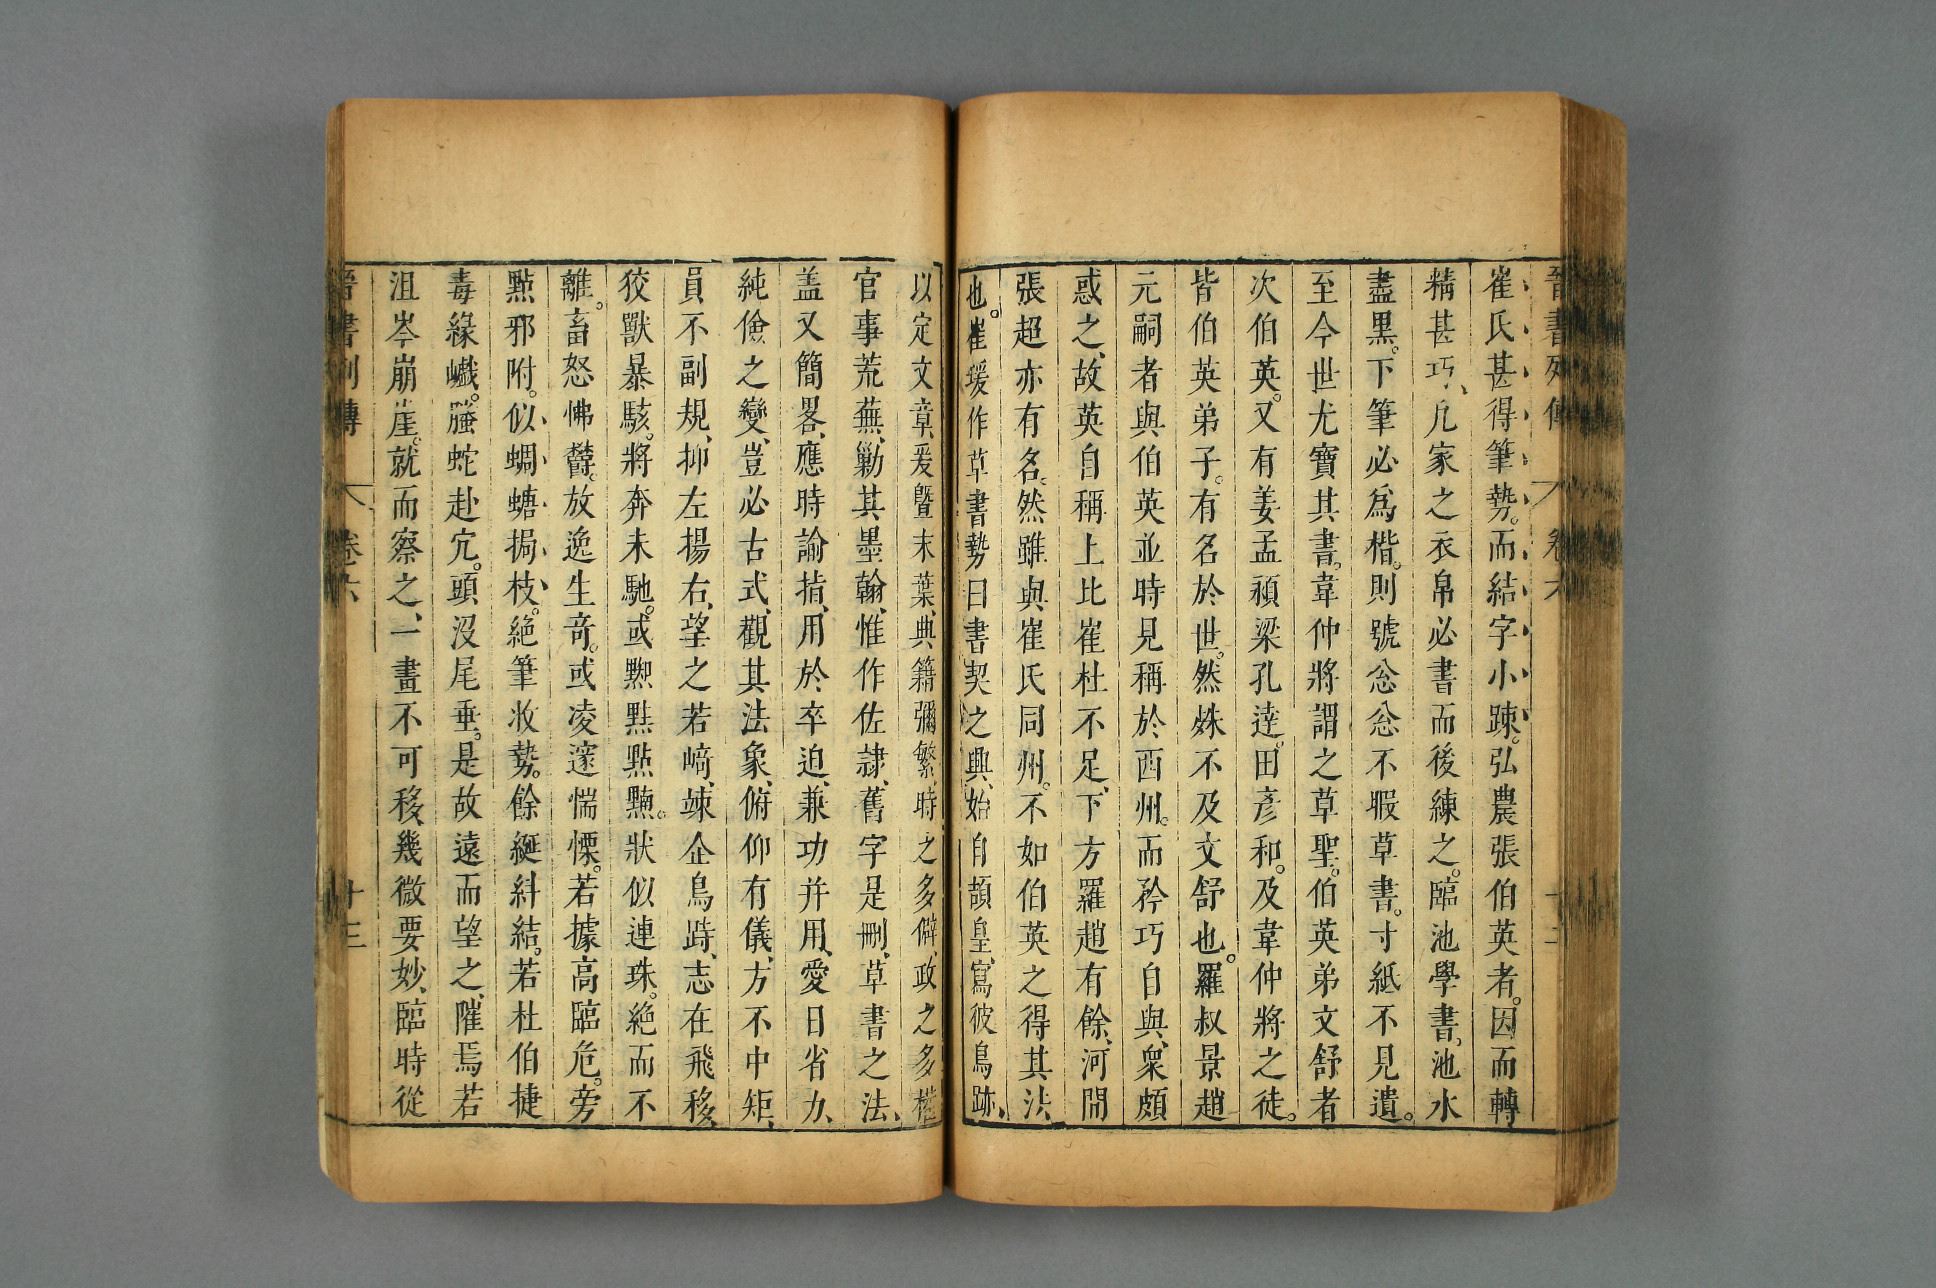 晉書列傳 卷六 十二
崔氏甚得筆勢。而結字小踈。弘農張伯英者。因而轉
精甚巧、凡家之衣帛必書而後練之。臨池學書、池水
盡黑。下筆必爲楷。則號忩忩不暇草書。寸紙不見遺。
至今世尤寶其書。韋仲將謂之草聖。伯英弟文舒者
次伯英。又有姜孟穎梁孔達。田彦和。及韋仲將之徒。
皆伯英弟子。有名於世。然姝不及文舒也。羅叔景趙
元嗣者與伯英並時見稱於西州。而矜巧自與、衆頗
惑之、故英自稱上比崔杜不足、下方羅趙有餘、河間
張超亦有名。然雖與崔氏同州。不如伯英之得其法
也。崔瑗作草書勢曰書契之興、始自頡皇、寫彼鳥跡、
以定文章、爰曁末葉、典籍彌繁、時之多僻、政之多權
官事荒蕪、勦其墨翰、惟作佐隷、舊字是刪、草書之法、
盖又簡畧、應時諭指、用於卒迫、兼功并用、愛日省力、
純儉之變、豈必古式、觀其法象、俯仰有儀、方不中矩、
員不副規、抑左揚右、望之若﨑、竦企鳥跱、志在飛移、
狡獸暴駭。將奔未馳。或黝點點黵。狀似連珠。絶而不
離。畜怒怫鬱。放逸生竒。或凌邃惴慄。若據高臨危。旁
㸃邪附。似蜩螗挶枝。絶筆收勢。餘綖糾結。若杜伯揵
毒緣巇。螣蛇赴穴。頭沒尾垂。是故遠而望之、隺焉若
沮岑崩崖。就而察之、一畫不可移、幾微要妙、臨時從
晉書列傳 卷六 十三